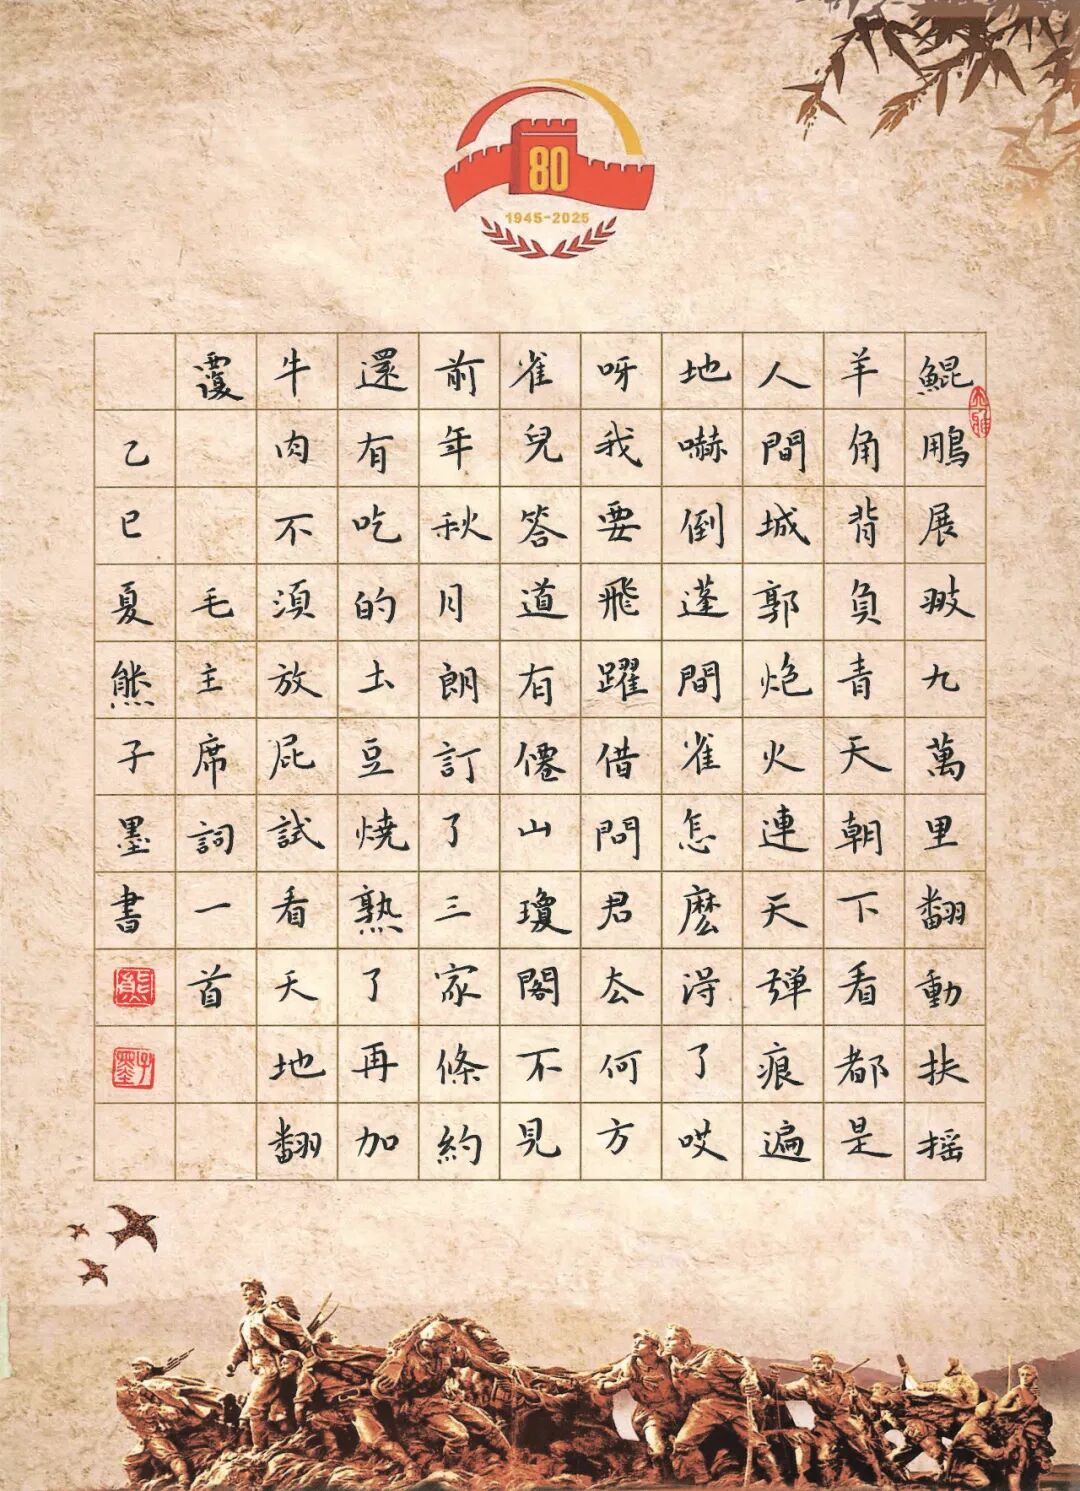 80
1945-2025
鯤鵬展翅九萬里翻動扶搖
羊角背負青天朝下看都是
人間城郭炮火連天彈痕遍
地嚇倒蓬間雀怎麽得了哎
呀我要飛躍借問君去何方
雀兒答道有僊山瓊閣不見
前年秋月朗訂了三家條約
還有吃的土豆燒熟了再加
牛肉不須放屁試看天地翻
覆 毛主席詞一首
乙巳夏熊子墨書
熊
子墨